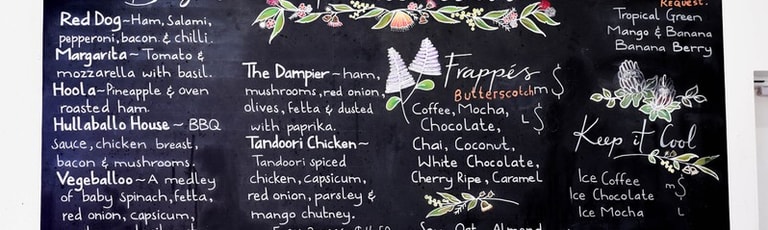 Red Dog~Ham, Salami,
pepperoni, bacon & chilli.
Margarita~ Tomato &
mozzarella with basil.
Hoola~Pineapple & oven
roasted ham.
Hullaballo House ~ BBQ
sauce, chicken breast,
bacon & mushrooms.
Vegeballoo~A medley
of baby spinach, fetta,
red onion, capsicum,
The Dampier~ham,
mushrooms, red onion,
olives, fetta & dusted
with paprika.
Tandoori Chicken~
Tandoori spiced
chicken, capsicum,
red onion, parsley &
mango chutney.
Frappés
Butterscotch
m $
L $
Coffee, Mocha,
Chocolate,
Chai, Coconut,
White Chocolate,
Cherry Ripe, Caramel
Soy, Oat, Almond
Request.
Tropical Green
Mango & Banana
Banana Berry
Keep it Cool
Ice Coffee
Ice Chocolate
Ice Mocha
m $
L